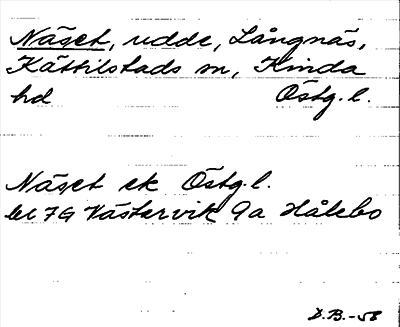 Näset, udde, Långnäs,
Kättilstads sn, Kinda
hd Östg. l.
Näset ek Östg. l.
bl 7G Västervik 9a Hålebo
D.B.-58